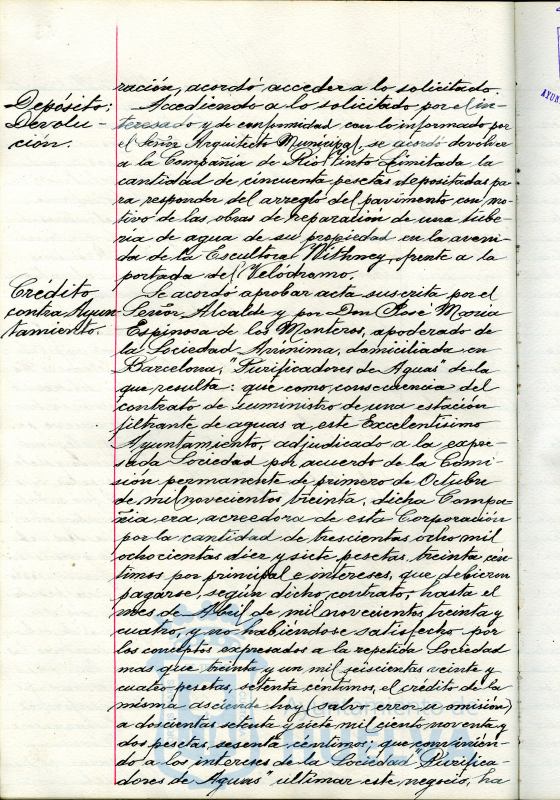 ración, acordó acceder a lo solicitado.
Depósito:
Devolu-
ción.
Accediendo a lo solicitado por el in-
teresado y de conformidad con lo informado por
el Señor Arquitecto Municipal, se acordó devolver
a la Compañia de Rio Tinto Limitada la
cantidad de cincuenta pesetas depositadas pa-
ra responder del arreglo del pavimento con mo-
tivo de las obras de reparación de una tube-
ria de agua de su propiedad en la aveni-
da de la Escultora Withney, frente a la
portada del Velodromo.
Crédito
contra Ayun-
tamiento.
Se acordó aprobar acta suscrita por el
Señor Alcalde y por Don José Maria
Espinosa de los Monteros, apoderado de
la Sociedad Anónima, domiciliada en
Barcelona, "Purificadores de Aguas" de la
que resulta: que como consecuencia del
contrato de suministro de una estación
filtrante de aguas a este Excelentísimo
Ayuntamiento, adjudicado a la expre-
sada Sociedad por acuerdo de la Comi-
sión permanente de primero de Octubre
de mil novecientos treinta, dicha Compa-
ñia era acreedora de esta Corporación
por la cantidad de trescientas ocho mil
ochocientas diez y siete pesetas, treinta cén-
timos por principal e intereses, que debieron
pagarse, según dicho contrato, hasta el
mes de Abril de mil novecientos treinta y
cuatro, y no habiéndose satisfecho por
los conceptos expresados a la repetida Sociedad
mas que treinta y un mil seiscientas veinte y
cuatro pesetas, setenta céntimos, el crédito de la
misma asciende hoy (salvo error u omisión)
a doscientas setenta y siete mil ciento noventa y
dos pesetas, sesenta céntimos; que convinien-
do a los intereses de la Sociedad "Purifica-
dores de Aguas" ultimar este negocio, ha
HUELVA
AYUN